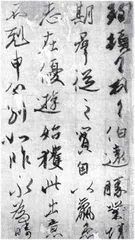 珣頓首頓首伯遠勝業情
期群從之寶自以羸患
志在優遊始獲此出意
不剋申分別如昨永為疇